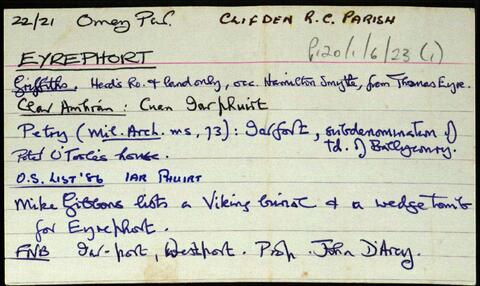 22/21 Omey Par. CLIFDEN R.C. PARISH
P120/1/6/23 (1)
EYREPHORT
Griffiths: Herd's Ho. & land only, occ. Hamilton Smyth, from Thomas Eyre.
Clár Amhrán: Cuan Iarphuirt
Petry (Mil. Arch. ms, 73): Iarfort, subdenomination of
td. of Ballyconry.
Patd O'Toole's house.
O.S. LIST '86 IAR PHUIRT
Mike Gibbons lists a Viking burial & a wedge tomb
for Eyrephort.
FNB Iar-port, Westport. Prop. John D'Arcy.